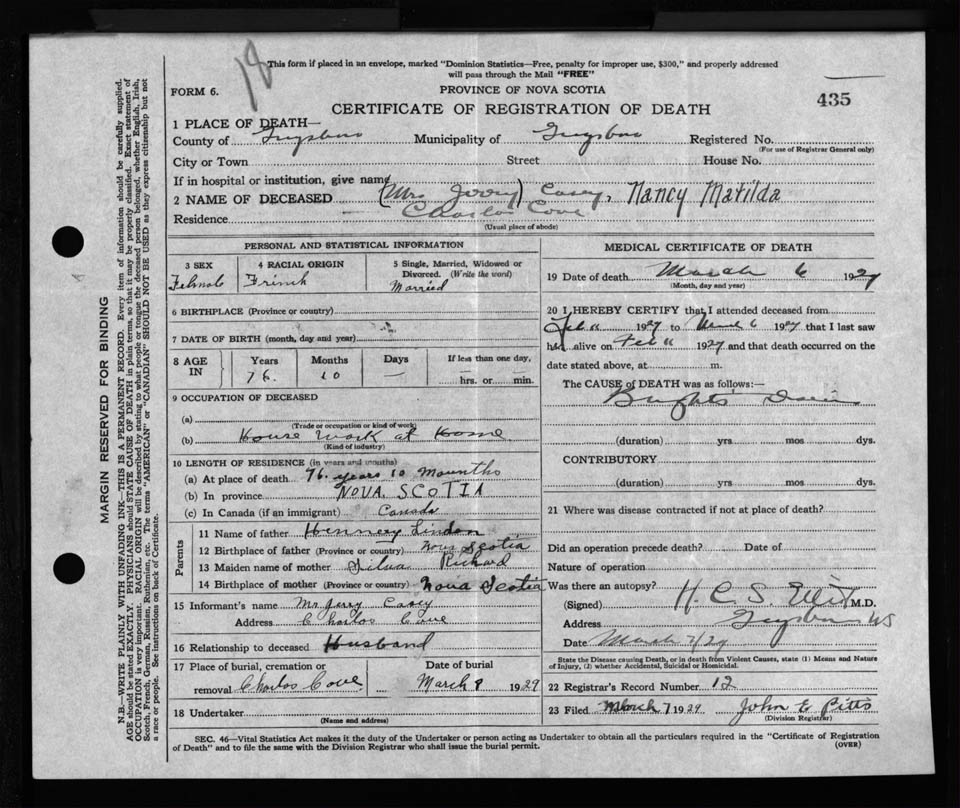 18
This form if placed in an envelope, marked "Dominion Statistics—Free, penalty for improper use, $300," and properly addressed
will pass through the Mail "FREE"
FORM 6.
PROVINCE OF NOVA SCOTIA
435
CERTIFICATE OF REGISTRATION OF DEATH
1 PLACE OF DEATH—
County of Guysboro Municipality of Guysboro Registered No.
(For use of Registrar General only)
City or Town Street House No.
If in hospital or institution, give name
2 NAME OF DECEASED (Mrs Jerry) Casey, Nancy Matilda
Residence Charlos Cove
(Usual place of abode)
PERSONAL AND STATISTICAL INFORMATION
3 SEX
4 RACIAL ORIGIN
5 Single, Married, Widowed or
Divorced. (Write the word)
Married
6 BIRTHPLACE (Province or country)
7 DATE OF BIRTH (month, day and year)
8 AGE IN
Years Months Days If less than one day,
76. 10 — hrs. or min.
9 OCCUPATION OF DECEASED
(a)
(Trade or occupation or kind of work)
(b) House Work at Home
(Kind of industry)
10 LENGTH OF RESIDENCE (in years and months)
(a) At place of death 76 years 10 Mounths
(b) In province NOVA SCOTIA
(c) In Canada (if an immigrant) Canada
Parents
11 Name of father Hennery Lindon
12 Birthplace of father (Province or country) Nova Scotia
13 Maiden name of mother Richard
14 Birthplace of mother (Province or country) Nova Scotia
15 Informant's name Mr Jerry Casey
Address Charlos Cove
16 Relationship to deceased Husband
17 Place of burial, cremation or
removal Charlos Cove
Date of burial
March 8 1929
18 Undertaker
(Name and address)
MEDICAL CERTIFICATE OF DEATH
19 Date of death March 6 1929
(Month, day and year)
20 I HEREBY CERTIFY that I attended deceased from
Feb 1929 to March 6 1929 that I last saw
her alive on Feb 1929 and that death occurred on the
date stated above, at m.
The CAUSE of DEATH was as follows:—
Bright's
(duration) yrs mos dys.
CONTRIBUTORY
(duration) yrs mos dys.
21 Where was disease contracted if not at place of death?
Did an operation precede death? Date of
Nature of operation
Was there an autopsy?
(Signed) H. C. S. M.D.
Address Guysboro NS
Date March 7/29
State the Disease causing Death, or in death from Violent Causes, state (1) Means and Nature
of Injury, (2) whether Accidental, Suicidal or Homicidal.
22 Registrar's Record Number 12
23 Filed March 7 1929 John E Pitts
(Division Registrar)
SEC. 46—Vital Statistics Act makes it the duty of the Undertaker or person acting as Undertaker to obtain all the particulars required in the "Certificate of Registration
of Death" and to file the same with the Division Registrar who shall issue the burial permit.
(OVER)
MARGIN RESERVED FOR BINDING
N.B.—WRITE PLAINLY WITH UNFADING INK—THIS IS A PERMANENT RECORD. Every item of information should be carefully supplied.
AGE should be stated EXACTLY. PHYSICIANS should STATE CAUSE OF DEATH in plain terms, so that it may be properly classified. Exact statement of
OCCUPATION is very important. RACIAL ORIGIN will be described by stating to what people or tongue the deceased person belonged, whether English, Irish,
Scotch, French, German, Russian, Ruthenian, etc. The terms "AMERICAN" or "CANADIAN" SHOULD NOT BE USED as they express citizenship but not
a race or people. See instructions on back of Certificate.